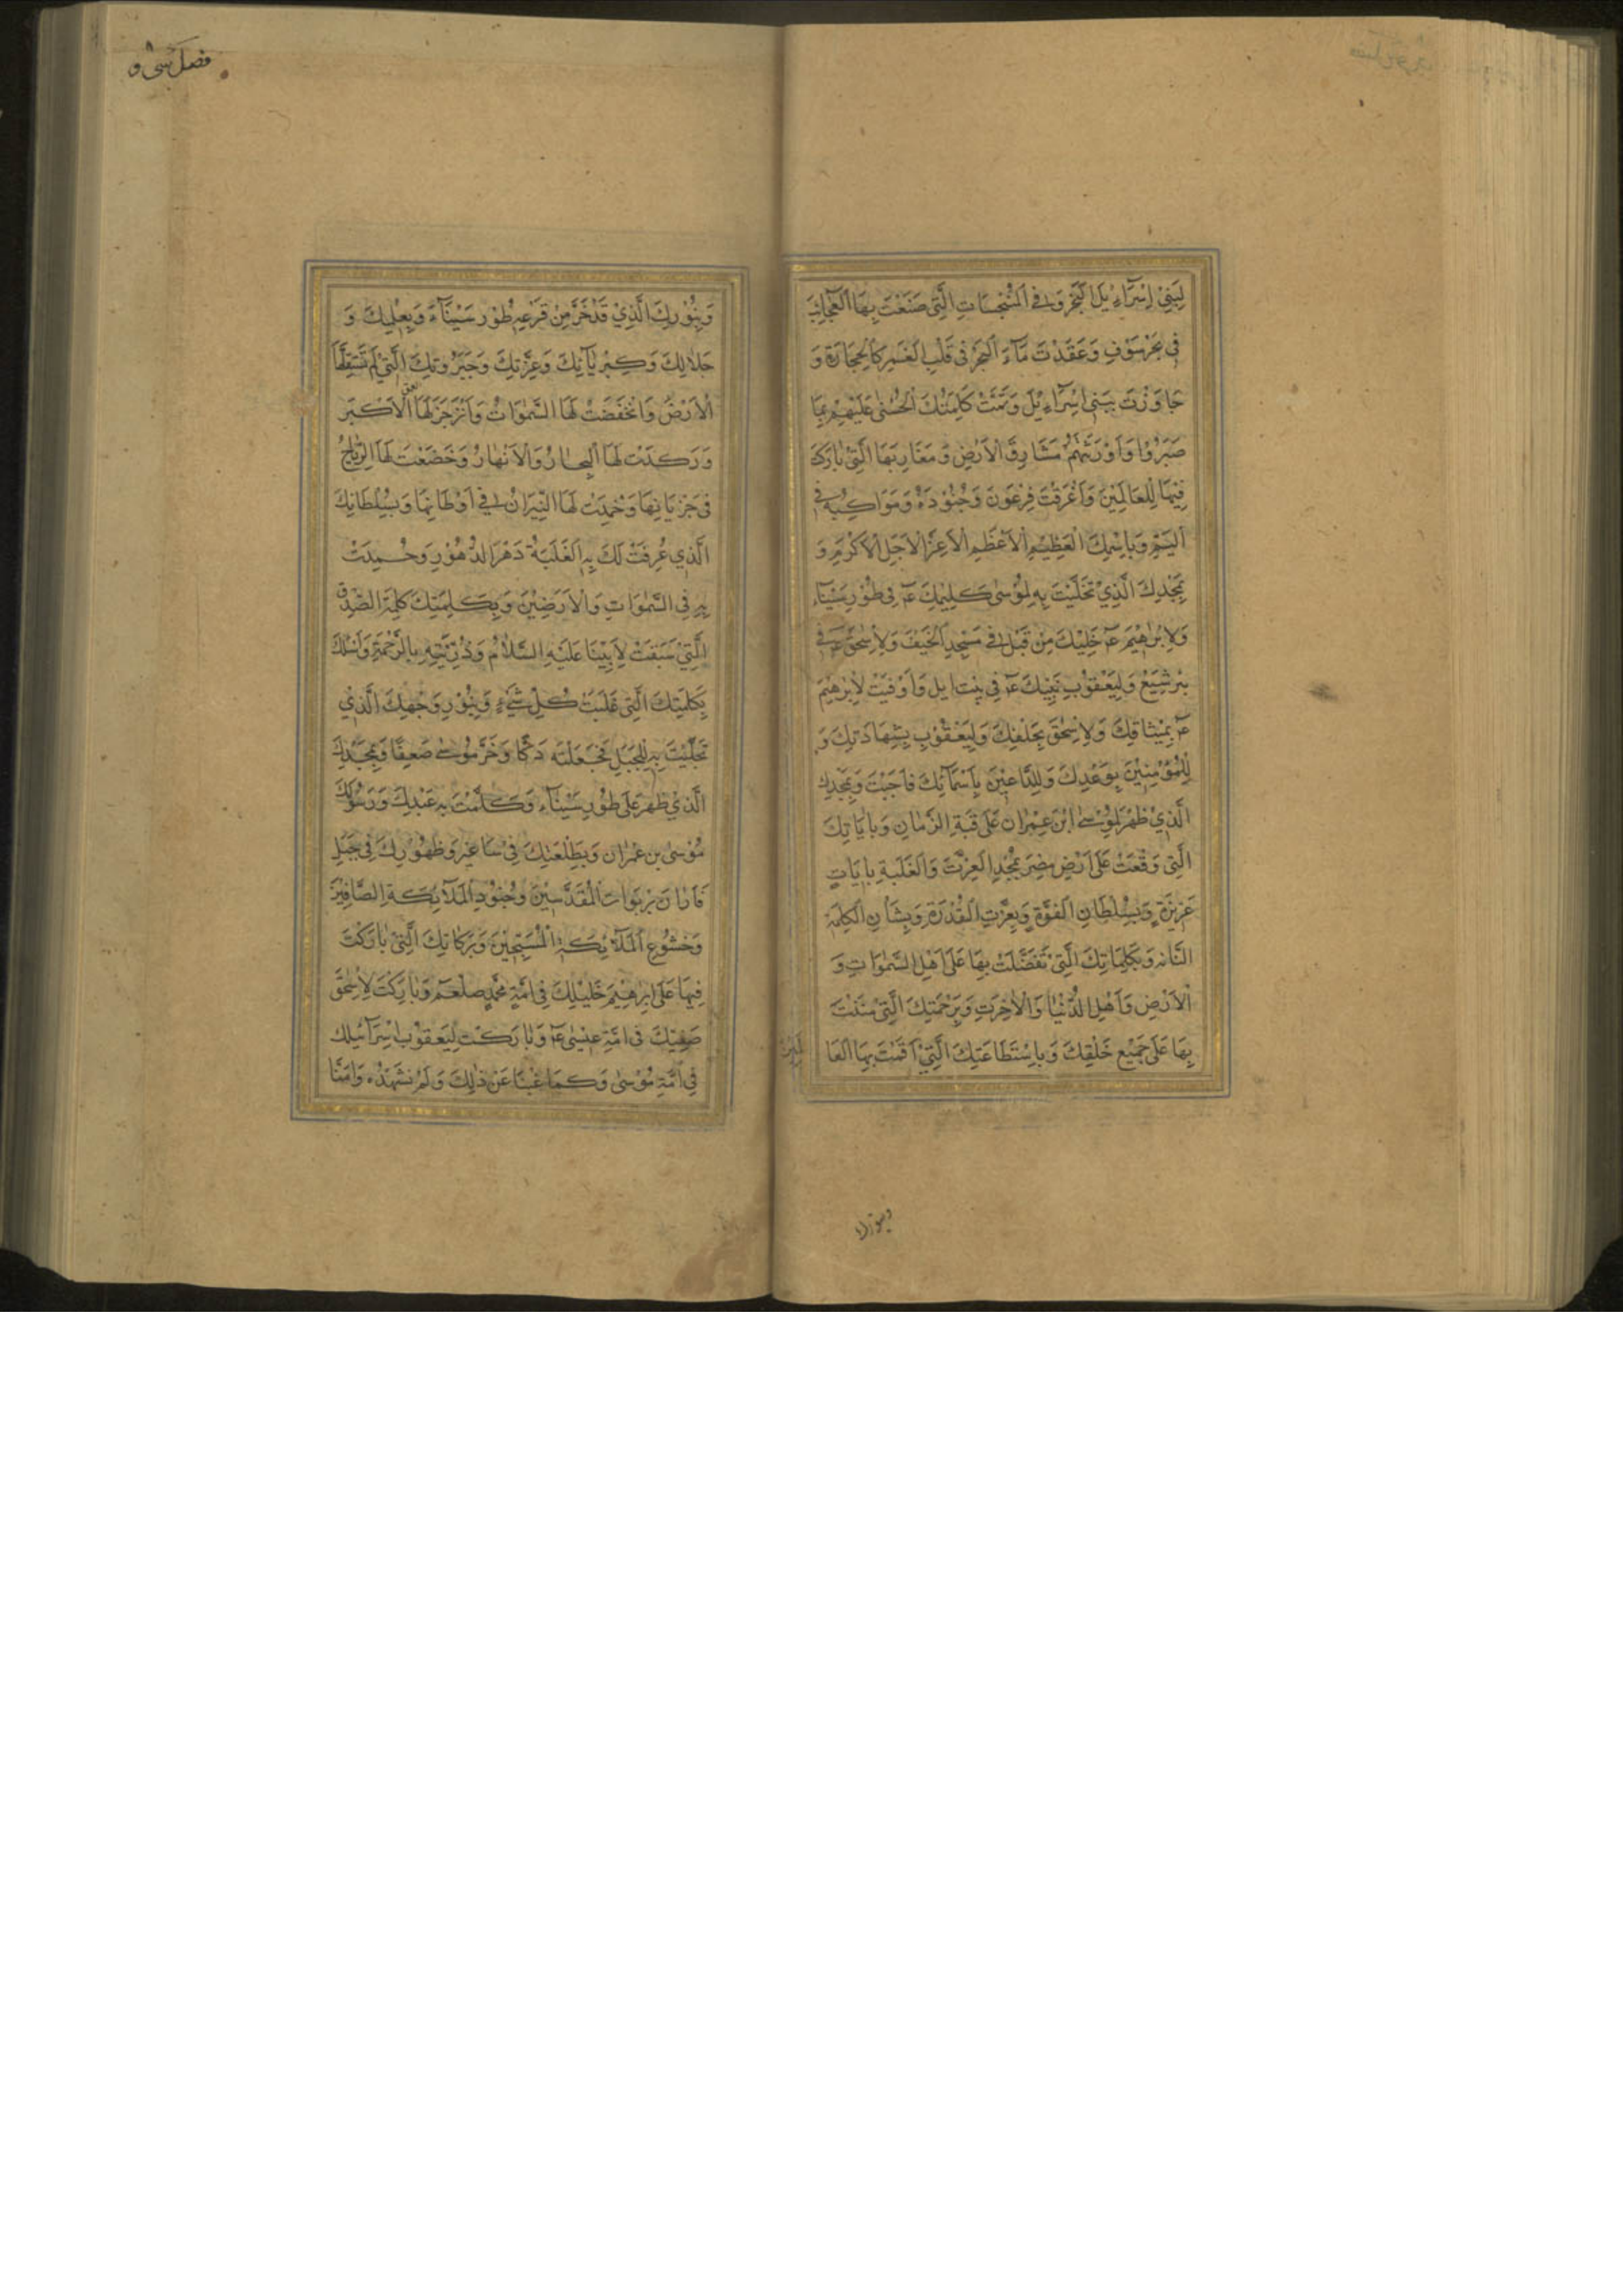 لِبَنِيْ اِسْرَآءِيْلَ الْبَحْرَ وَفِي الْمُنْبَجِسَاتِ الَّتِيْ صَنَعْتَ بِهَا الْعَجَائِبَ
فِيْ بَحْرِ سَوْفٍ وَعَقَدْتَ مَآءَ الْبَحْرِ فِيْ قَلْبِ الْغَمْرِ كَالْحِجَارَةِ وَ
جَاوَزْتَ بِبَنِيْ اِسْرَآءِيْلَ وَتَمَّتْ كَلِمَتُكَ الْحُسْنٰى عَلَيْهِمْ بِمَا
صَبَرُوْا وَاَوْرَثْتَهُمْ مَشَارِقَ الْاَرْضِ وَمَغَارِبَهَا الَّتِيْ بَارَكْتَ
فِيْهَا لِلْعَالَمِيْنَ وَاَغْرَقْتَ فِرْعَوْنَ وَجُنُوْدَهُ وَمَوَاكِبَهُ فِي
الْيَمِّ وَبِاسْمِكَ الْعَظِيْمِ الْاَعْظَمِ الْاَعَزِّ الْاَجَلِّ الْاَكْرَمِ وَ
بِمَجْدِكَ الَّذِيْ تَجَلَّيْتَ بِهِ لِمُوْسٰى كَلِيْمِكَ عم فِيْ طُوْرِ سَيْنَآءَ
وَلِاِبْرٰهِيْمَ عم خَلِيْلِكَ مِنْ قَبْلُ فِيْ مَسْجِدِ الْخَيْفِ وَلِاِسْحٰقَ عم فِيْ
بِئْرِ شِيَعٍ وَلِيَعْقُوْبَ نَبِيِّكَ عم فِيْ بَيْتِ اِيْلَ وَاَوْفَيْتَ لِاِبْرٰهِيْمَ
عم بِمِيْثَاقِكَ وَلِاِسْحٰقَ بِحَلْفِكَ وَلِيَعْقُوْبَ بِشَهَادَتِكَ وَ
لِلْمُؤْمِنِيْنَ بِوَعْدِكَ وَلِلدَّاعِيْنَ بِاَسْمَآئِكَ فَاَجَبْتَ وَبِمَجْدِكَ
الَّذِيْ ظَهَرَ لِمُوْسٰى ابْنِ عِمْرَانَ عَلٰى قُبَّةِ الزَّمَانِ وَبِاٰيَاتِكَ
الَّتِيْ وَقَعَتْ عَلٰى اَرْضِ مِصْرَ بِمَجْدِ الْعِزَّةِ وَالْغَلَبَةِ بِاٰيَاتٍ
عَزِيْزَةٍ وَبِسُلْطَانِ الْقُوَّةِ وَبِعِزَّةِ الْقُدْرَةِ وَبِشَانِ الْكَلِمَةِ
التَّامَّةِ وَبِكَلِمَاتِكَ الَّتِيْ تَفَضَّلْتَ بِهَا عَلٰى اَهْلِ السَّمٰوَاتِ وَ
الْاَرْضِ وَاَهْلِ الدُّنْيَا وَالْاٰخِرَةِ وَبِرَحْمَتِكَ الَّتِيْ مَنَنْتَ
بِهَا عَلٰى جَمِيْعِ خَلْقِكَ وَبِاسْتِطَاعَتِكَ الَّتِيْ اَقَمْتَ بِهَا الْعَا
لَمِيْنَ
وبنورك
فصل سی و
وَبِنُوْرِكَ الَّذِيْ قَدْ خَرَّ مِنْ فَزَعِهِ طُوْرُ سَيْنَآءَ وَبِعِلْمِكَ وَ
جَلَالِكَ وَكِبْرِيَآئِكَ وَعِزَّتِكَ وَجَبَرُوْتِكَ الَّتِيْ لَمْ تَسْتَقِلَّهَا
الْاَرْضُ وَانْخَفَضَتْ لَهَا السَّمٰوَاتُ وَانْزَجَرَ لَهَا الْعُمْقُ الْاَكْبَرُ
وَرَكَدَتْ لَهَا الْبِحَارُ وَالْاَنْهَارُ وَخَضَعَتْ لَهَا الرِّيَاحُ
فِيْ جَرَيَانِهَا وَخَمِدَتْ لَهَا النِّيْرَانُ فِيْ اَوْطَانِهَا وَبِسُلْطَانِكَ
الَّذِيْ عُرِفَتْ لَكَ بِهِ الْغَلَبَةُ دَهْرَ الدُّهُوْرِ وَحُمِدْتَ
بِهِ فِي السَّمٰوَاتِ وَالْاَرَضِيْنَ وَبِكَلِمَتِكَ كَلِمَةِ الصِّدْقِ
الَّتِيْ سَبَقَتْ لِاَبِيْنَا عَلَيْهِ السَّلَامُ وَذُرِّيَّتِهِ بِالرَّحْمَةِ وَاَسْئَلُكَ
بِكَلِمَتِكَ الَّتِيْ غَلَبَتْ كُلَّ شَيْءٍ وَبِنُوْرِ وَجْهِكَ الَّذِيْ
تَجَلَّيْتَ بِهِ لِلْجَبَلِ فَجَعَلْتَهُ دَكًّا وَخَرَّ مُوْسٰى صَعِقًا وَبِمَجْدِكَ
الَّذِيْ ظَهَرَ عَلٰى طُوْرِ سَيْنَآءَ وَكَلَّمْتَ بِهِ عَبْدَكَ وَرَسُوْلَكَ
مُوْسٰى بْنَ عِمْرَانَ وَبِطَلْعَتِكَ فِيْ سَاعِيْرَ وَظُهُوْرِكَ فِيْ جَبَلِ
فَارَانَ بِرَبَوَاتِ الْمُقَدَّسِيْنَ وَجُنُوْدِ الْمَلَآئِكَةِ الصَّافِّيْنَ
وَخُشُوْعِ الْمَلَآئِكَةِ الْمُسَبِّحِيْنَ وَبَرَكَاتِكَ الَّتِيْ بَارَكْتَ
فِيْهَا عَلٰى اِبْرٰهِيْمَ خَلِيْلِكَ فِيْ اُمَّةِ مُحَمَّدٍ صلعم وَبَارَكْتَ لِاِسْحٰقَ
صَفِيِّكَ فِيْ اُمَّةِ عِيْسٰى عم وَبَارَكْتَ لِيَعْقُوْبَ اِسْرَآئِيْلِكَ
فِيْ اُمَّةِ مُوْسٰى وَكَمَا غِبْنَا عَنْ ذٰلِكَ وَلَمْ نَشْهَدْهُ وَاٰمَنَّا